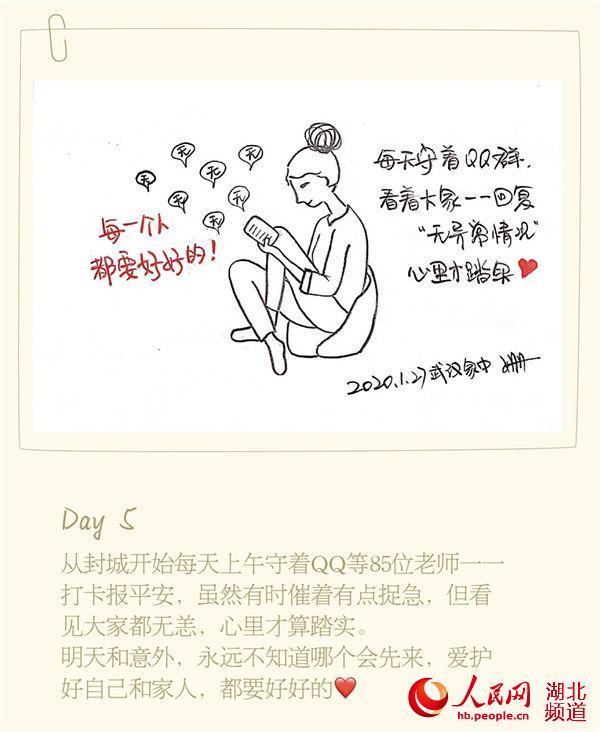 无
无
无
无
无
无
无
每天守着QQ群，
看着大家一一回复
“无异常情况”
心里才踏实❤
每一个人
都要好好的！
2020.1.27武汉家中
Day 5
从封城开始每天上午守着QQ等85位老师一一
打卡报平安，虽然有时催着有点捉急，但看
见大家都无恙，心里才算踏实。
明天和意外，永远不知道哪个会先来，爱护
好自己和家人，都要好好的❤
人民网
hb.people.cn
湖北
频道